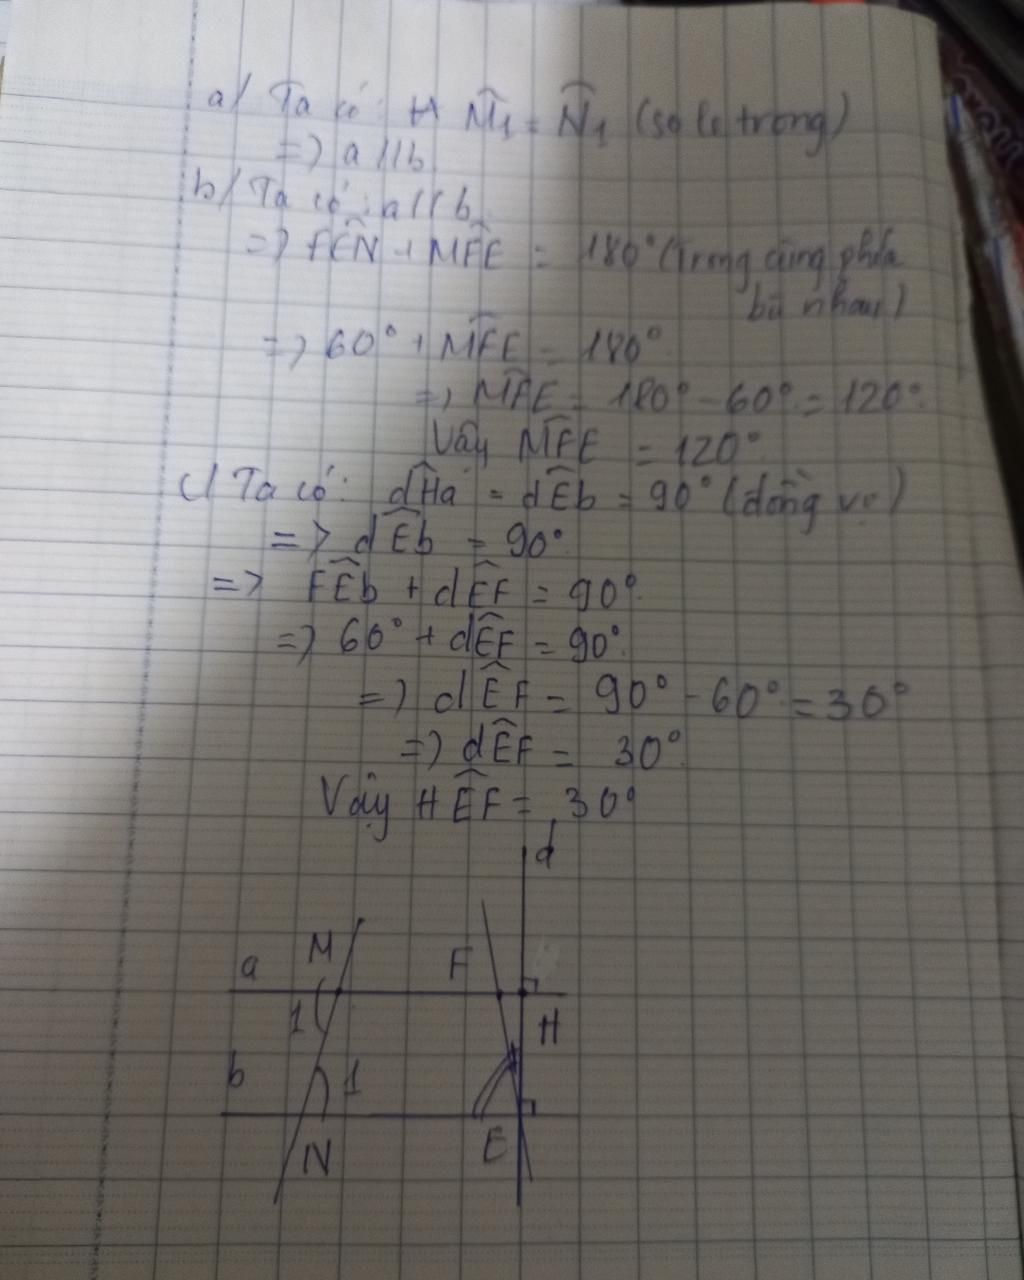 a/ Ta có: A M̂₁ = N̂₁ (so le trong)
=> a // b
b/ Ta có: a // b
=> FÊN + MF̂E = 180° (trong cùng phía
bù nhau)
=> 60° + MF̂E = 180°
=> MF̂E = 180° - 60° = 120°
Vậy MF̂E = 120°
c/ Ta có: dĤa = dÊb = 90° (đồng vị)
=> dÊb = 90°
=> FÊb + dÊF = 90°
=> 60° + dÊF = 90°
=> dÊF = 90° - 60° = 30°
=> dÊF = 30°
Vậy HÊF = 30°
d
a M F
1 H
b 1
N E